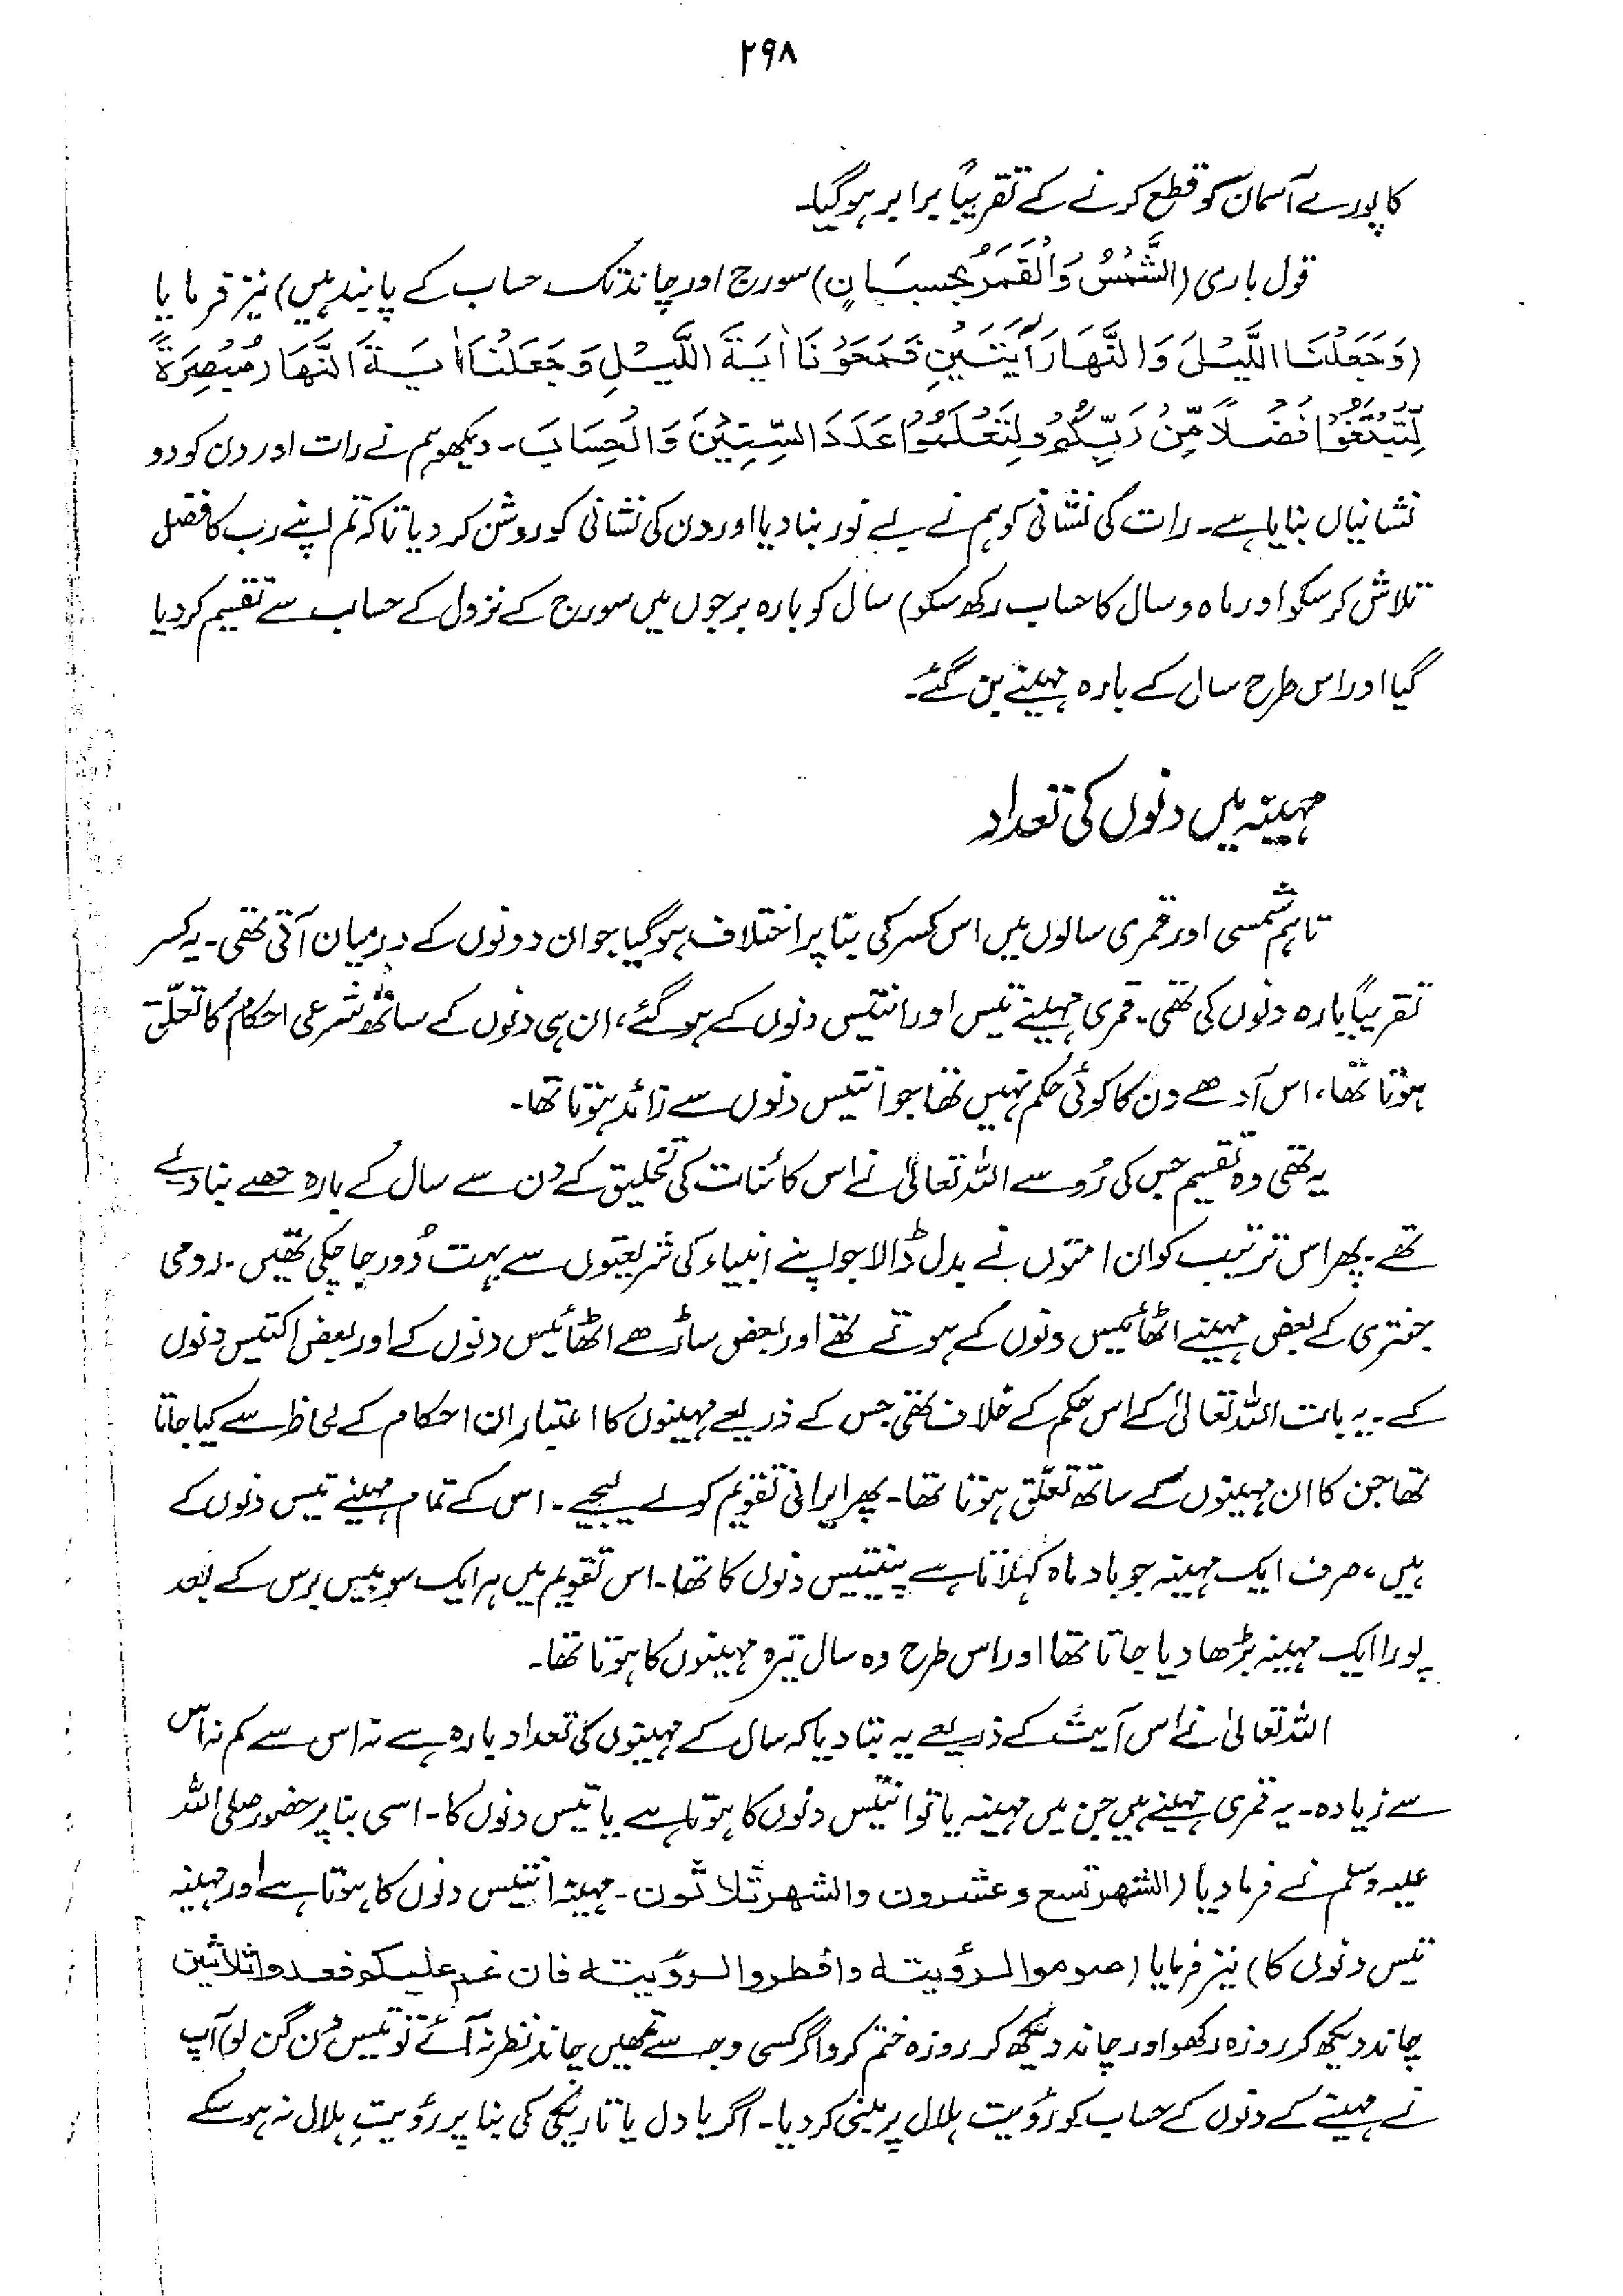 ۲۹۸
کا پورے آسمان کو قطع کرنے کے تقریباً برابر ہوگیا۔
قول باری (اَلشَّمْسُ وَالْقَمَرُ بِحُسْبَانٍ) سورج اور چاند تک حساب کے پابند ہیں) نیز فرمایا
(وَجَعَلْنَا اللَّيْلَ وَالنَّهَارَ اٰيَتَيْنِ فَمَحَوْنَا اٰيَةَ اللَّيْلِ وَجَعَلْنَا اٰيَةَ النَّهَارِ مُبْصِرَةً
لِّتَبْتَغُوْا فَضْلًا مِّنْ رَّبِّكُمْ وَلِتَعْلَمُوْا عَدَدَ السِّنِيْنَ وَالْحِسَابَ۔ دیکھو ہم نے رات اور دن کو دو
نشانیاں بنایا ہے۔ رات کی نشانی کو ہم نے بے نور بنادیا اور دن کی نشانی کو روشن کر دیا تاکہ تم اپنے رب کا فضل
تلاش کرسکو اور ماہ و سال کا حساب رکھ سکو) سال کو بارہ برجوں میں سورج کے نزول کے حساب سے تقسیم کردیا
گیا اور اس طرح سال کے بارہ مہینے بن گئے۔
مہینہ میں دنوں کی تعداد
تاہم شمسی اور قمری سالوں میں اس کسر کی بنا پر اختلاف ہوگیا جو ان دونوں کے درمیان آتی تھی۔ یہ کسر
تقریباً بارہ دنوں کی تھی۔ قمری مہینے تیس اور انتیس دنوں کے ہوگئے، ان ہی دنوں کے ساتھ شرعی احکام کا تعلّق
ہوتا تھا، اس آدھے دن کا کوئی حکم نہیں تھا جو انتیس دنوں سے زائد ہوتا تھا۔
یہ تھی وہ تقسیم جس کی رُو سے اللہ تعالیٰ نے اس کائنات کی تخلیق کے دن سے سال کے بارہ حصے بنادیے
تھے۔ پھر اس ترتیب کو ان امتوں نے بدل ڈالا جو اپنے انبیاء کی شریعتوں سے بہت دُور جاچکی تھیں۔ رومی
جنتری کے بعض مہینے اٹھائیس دنوں کے ہوتے تھے اور بعض ساڑھے اٹھائیس دنوں کے اور بعض اکتیس دنوں
کے۔ یہ بات اللہ تعالیٰ کے اس حکم کے خلاف تھی جس کے ذریعے مہینوں کا اعتبار ان احکام کے لحاظ سے کیا جاتا
تھا جن کا ان مہینوں کے ساتھ تعلّق ہوتا تھا۔ پھر ایرانی تقویم کو لے لیجیے۔ اس کے تمام مہینے تیس دنوں کے
ہیں، صرف ایک مہینہ جو باد ماہ کہلاتا ہے پینتیس دنوں کا تھا۔ اس تقویم میں ہر ایک سو بیس برس کے بعد
پورا ایک مہینہ بڑھا دیا جاتا تھا اور اس طرح وہ سال تیرہ مہینوں کا ہوتا تھا۔
اللہ تعالیٰ نے اس آیت کے ذریعے یہ بتا دیا کہ سال کے مہینوں کی تعداد بارہ ہے نہ اس سے کم نہ اس
سے زیادہ۔ یہ قمری مہینے ہیں جن میں مہینہ یا تو انتیس دنوں کا ہوتا ہے یا تیس دنوں کا۔ اسی بنا پر حضور صلی اللہ
علیہ وسلم نے فرمادیا (الشهر تسع وعشرون والشهر ثلاثون۔ مہینہ انتیس دنوں کا ہوتا ہے اور مہینہ
تیس دنوں کا) نیز فرمایا (صوموا لرؤيته وأفطروا لرؤيته فان غم عليكم فعدوا ثلاثين
چاند دیکھ کر روزہ رکھو اور چاند دیکھ کر روزہ ختم کرو اگر کسی وجہ سے تمھیں چاند نظر نہ آئے تو تیس دن گن لو) آپ
نے مہینے کے دنوں کے حساب کو رؤیت ہلال پر مبنی کردیا۔ اگر بادل یا تاریکی کی بنا پر رؤیتِ ہلال نہ ہوسکے